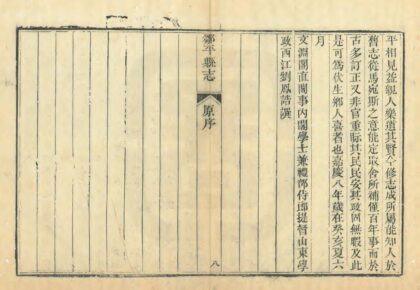 平相見並親人樂道其賢今修志成所屬能知人於
舊志從馬宛斯之意能定取舍所補僅百年事而於
古多訂正又非官重賑其民民安其政因無暇及此
是可為伏生鄉人喜者也嘉慶八年歲在癸亥夏六
月
文淵閣直閣事內閣學士兼禮部侍郎提督山東學
政西江劉鳳誥譔
鄒平縣志
原序
八